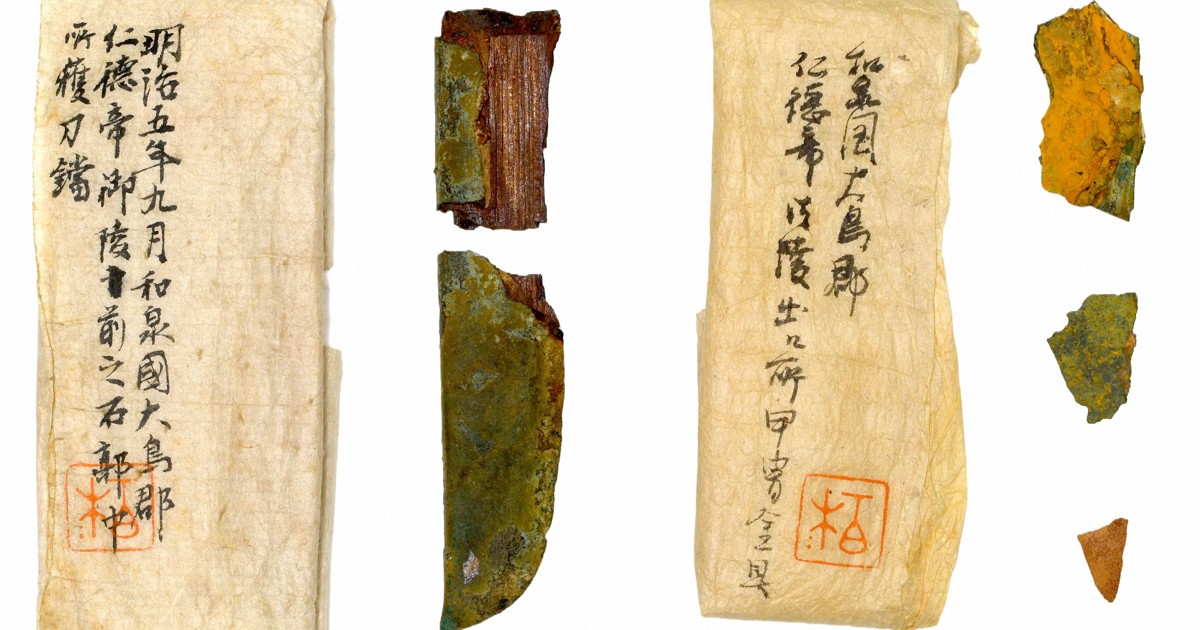 明治五年九月和泉國大鳥郡
仁德帝御陵前之石郭中
所獲刀鐺
栢
和泉国大鳥郡
仁徳帝御陵出所甲冑金具
栢